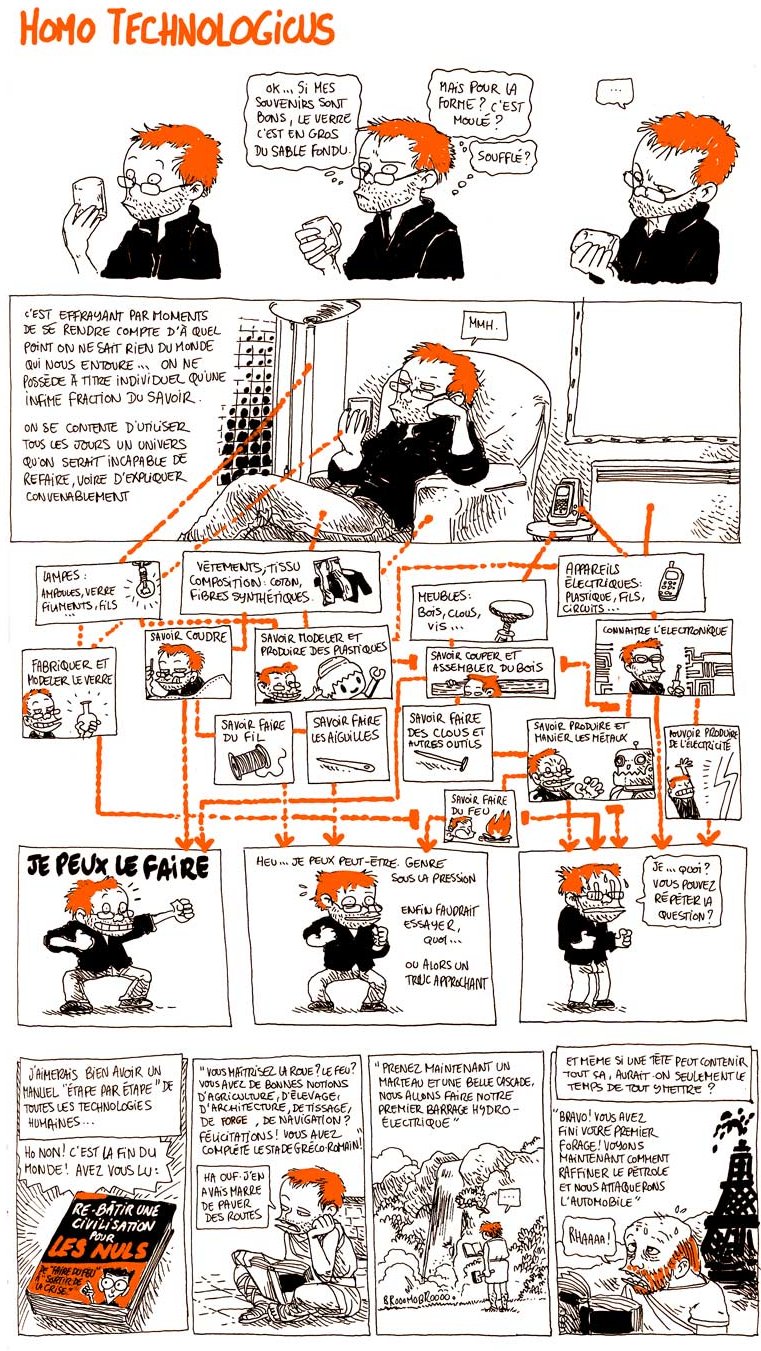 HOMO TECHNOLOGICUS
OK... SI MES
SOUVENIRS SONT
BONS, LE VERRE
C'EST EN GROS
DU SABLE FONDU.
MAIS POUR LA
FORME? C'EST
MOULÉ?
SOUFFLÉ?
...
C'EST EFFRAYANT PAR MOMENTS
DE SE RENDRE COMPTE D'À QUEL
POINT ON NE SAIT RIEN DU MONDE
QUI NOUS ENTOURE... ON NE
POSSÈDE À TITRE INDIVIDUEL QU'UNE
INFIME FRACTION DU SAVOIR.
ON SE CONTENTE D'UTILISER
TOUS LES JOURS UN UNIVERS
QU'ON SERAIT INCAPABLE DE
REFAIRE, VOIRE D'EXPLIQUER
CONVENABLEMENT
MMH.
LAMPES:
AMPOULES, VERRE
FILAMENTS, FILS
...
VÊTEMENTS, TISSU
COMPOSITION: COTON,
FIBRES SYNTHÉTIQUES
MEUBLES:
BOIS, CLOUS,
VIS...
APPAREILS
ÉLECTRIQUES:
PLASTIQUE, FILS,
CIRCUITS...
FABRIQUER ET
MODELER LE VERRE
SAVOIR COUDRE
SAVOIR MODELER ET
PRODUIRE DES PLASTIQUES
SAVOIR COUPER ET
ASSEMBLER DU BOIS
CONNAITRE L'ELECTRONIQUE
SAVOIR FAIRE
DU FIL
SAVOIR FAIRE
LES AIGUILLES
SAVOIR FAIRE
DES CLOUS ET
AUTRES OUTILS
SAVOIR PRODUIRE ET
MANIER LES MÉTAUX
POUVOIR PRODUIRE
DE L'ÉLECTRICITÉ
SAVOIR FAIRE
DU FEU
JE PEUX LE FAIRE
HEU... JE PEUX PEUT-ÊTRE. GENRE
SOUS LA PRESSION
ENFIN FAUDRAIT
ESSAYER,
QUOI...
OU ALORS UN
TRUC APPROCHANT
JE... QUOI?
VOUS POUVEZ
RÉPÉTER LA
QUESTION?
J'AIMERAIS BIEN AVOIR UN
MANUEL "ÉTAPE PAR ÉTAPE" DE
TOUTES LES TECHNOLOGIES
HUMAINES...
HO NON! C'EST LA FIN DU
MONDE! AVEZ VOUS LU:
RE-BÂTIR UNE
CIVILISATION
POUR
LES NULS
DE "FAIRE DU FEU"
À "SORTIR DE
LA CRISE"
"VOUS MAÎTRISEZ LA ROUE? LE FEU?
VOUS AVEZ DE BONNES NOTIONS
D'AGRICULTURE, D'ÉLEVAGE,
D'ARCHITECTURE, DE TISSAGE,
DE FORGE, DE NAVIGATION?
FÉLICITATIONS! VOUS AVEZ
COMPLÉTÉ LE STADE GRÉCO-ROMAIN!
HA OUF. J'EN
AVAIS MARRE
DE PAVER
DES ROUTES.
"PRENEZ MAINTENANT UN
MARTEAU ET UNE BELLE CASCADE,
NOUS ALLONS FAIRE NOTRE
PREMIER BARRAGE HYDRO-
ÉLECTRIQUE"
...
BROOMOBROOOO.
ET MÊME SI UNE TÊTE PEUT CONTENIR
TOUT ÇA, AURAIT-ON SEULEMENT LE
TEMPS DE TOUT Y METTRE?
"BRAVO! VOUS AVEZ
FINI VOTRE PREMIER
FORAGE! VOYONS
MAINTENANT COMMENT
RAFFINER LE PÉTROLE
ET NOUS ATTAQUERONS
L'AUTOMOBILE"
RHAAAA!